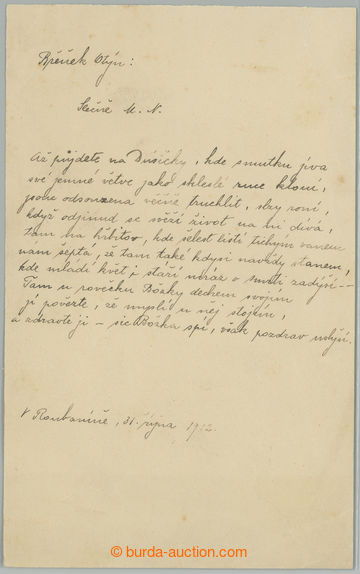 Břéněk Otýn:
Slečně M. N.
Až půjdete na Dušičky, kde smutku jíva
své jemné větve jako skleslé ruce kloní,
jsouc odsouzena věčně truchlit, slzy roní,
když odjinud se svěží život na ni dívá,
tam na hřbitov, kde šelest listí tichým vanem
nám šeptá, že tam také kdysi navždy stanem,
kde mládí květ i stáří mráz v smrti zadýší --
Tam u rovečku Božky dechem svojím
jí povězte, že myslí u něj stojím,
a zdravte ji - sic Božka spí, však pozdrav uslyší.
V Roubaníně, 31. října 1912.
burda-auction.com